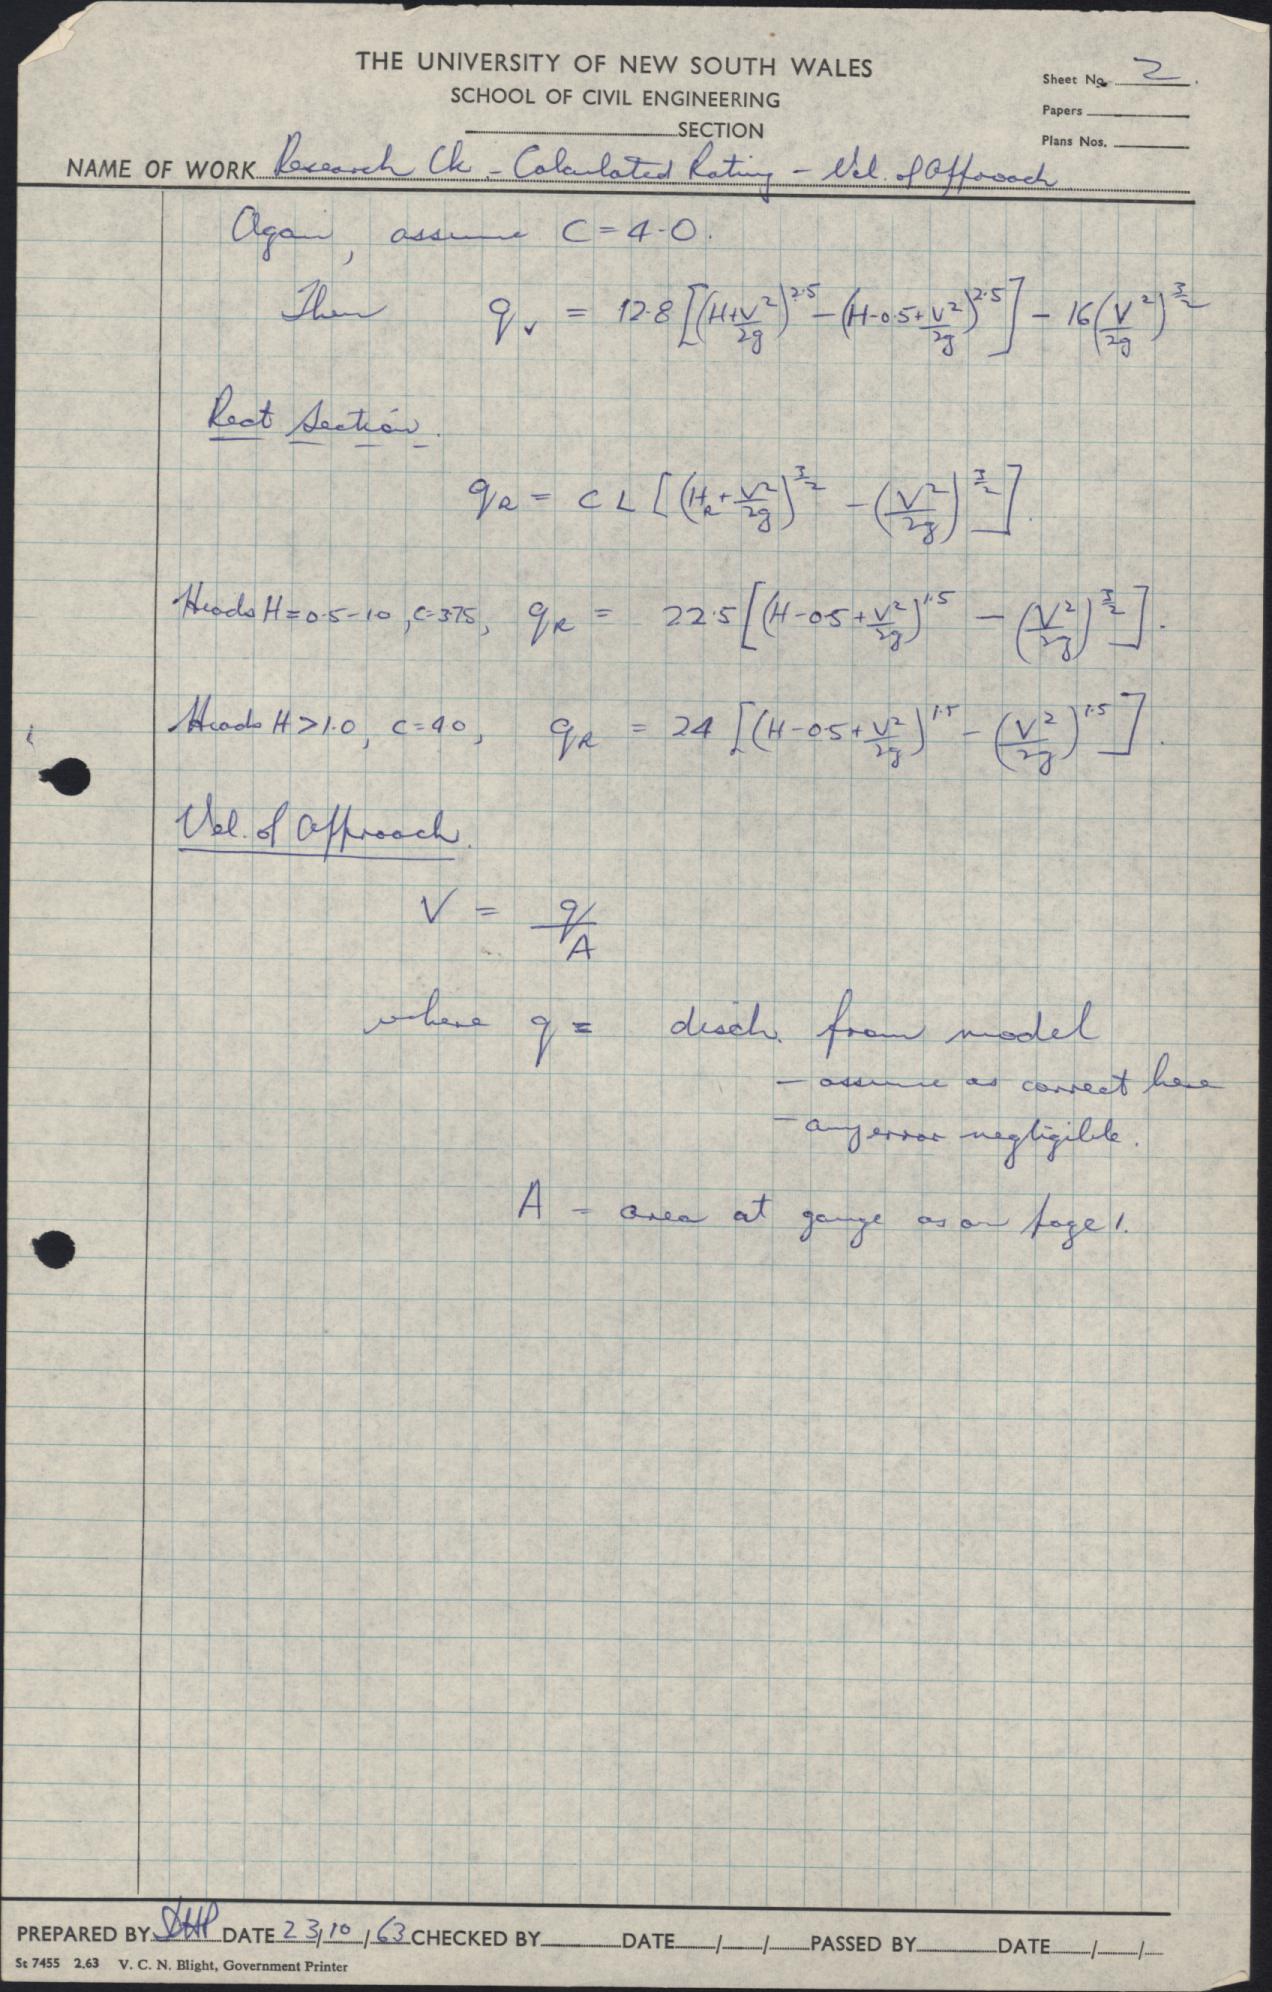 THE UNIVERSITY OF NEW SOUTH WALES
SCHOOL OF CIVIL ENGINEERING
SECTION
Sheet No. 2.
Papers
Plans Nos.
NAME OF WORK Research Ck. - Calculated Rating - Vel. of Approach
Again, assume C = 4.0.
Then q_v = 12.8 [(H+V²/2g)^2.5 - (H-0.5+V²/2g)^2.5] - 16(V²/2g)^3/2
Rect Section.
q_R = C L [(H_R+V²/2g)^3/2 - (V²/2g)^3/2].
Heads H = 0.5-1.0, C=3.75, q_R = 22.5 [(H-0.5+V²/2g)^1.5 - (V²/2g)^3/2].
Heads H > 1.0, C=4.0, q_R = 24 [(H-0.5+V²/2g)^1.5 - (V²/2g)^1.5].
Vel. of Approach.
V = q/A
where q = disch. from model
- assume as correct here
- any error negligible.
A = area at gauge as on page 1.
PREPARED BY DHP DATE 23/10/63 CHECKED BY DATE / / PASSED BY DATE / /
St 7455 2.63 V. C. N. Blight, Government Printer